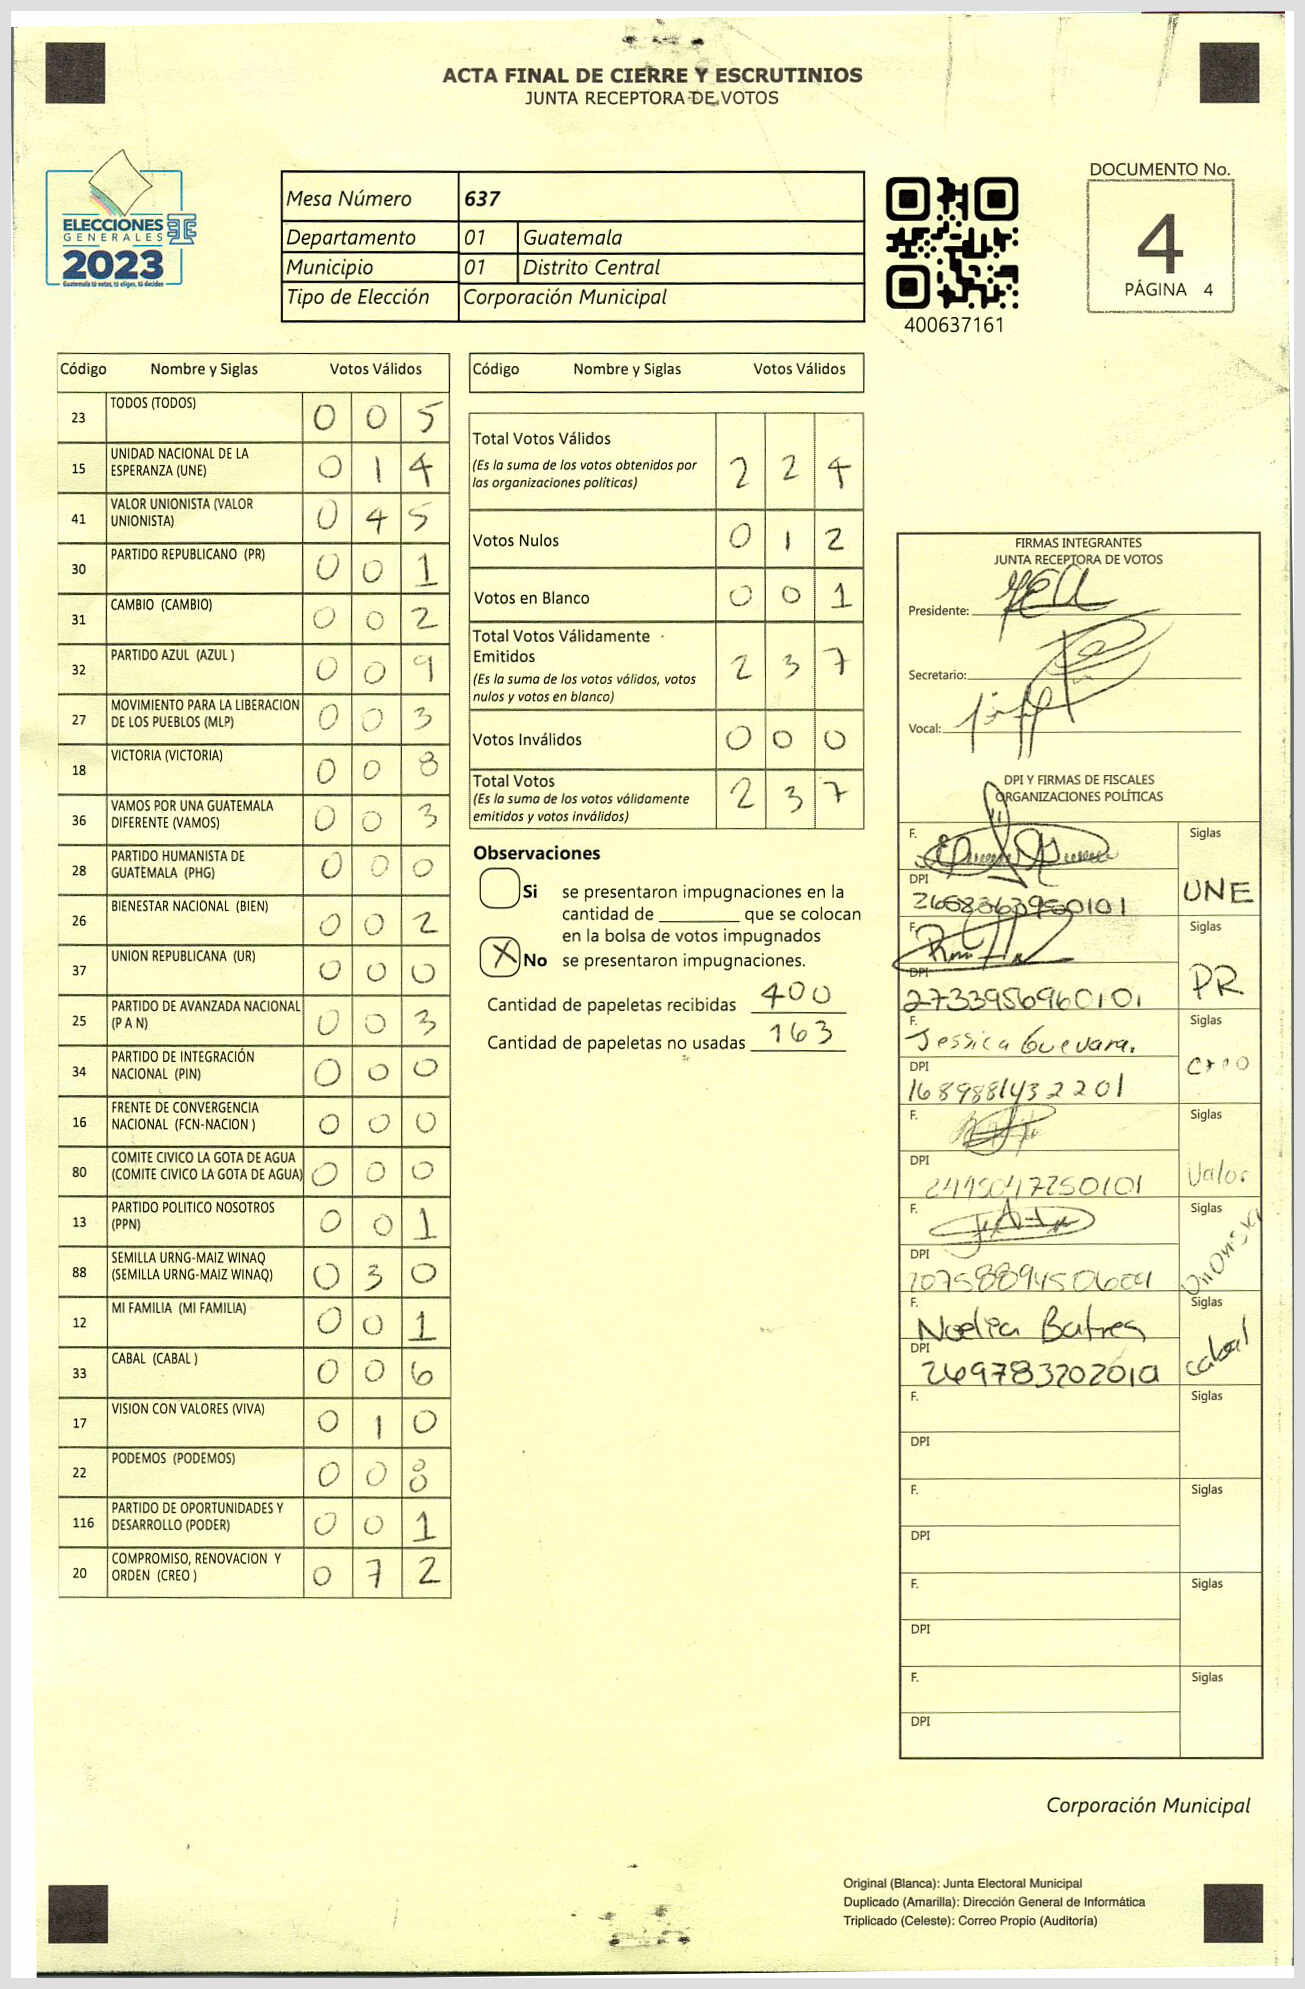 ACTA FINAL DE CIERRE Y ESCRUTINIOS
JUNTA RECEPTORA DE VOTOS
ELECCIONES
GENERALES
2023
Guatemala tú votas, tú eliges, tú decides
Mesa Número 637
Departamento 01 Guatemala
Municipio 01 Distrito Central
Tipo de Elección Corporación Municipal
400637161
DOCUMENTO No.
4
PÁGINA 4
Código Nombre y Siglas Votos Válidos
23 TODOS (TODOS) 0 0 5
15 UNIDAD NACIONAL DE LA ESPERANZA (UNE) 0 1 4
41 VALOR UNIONISTA (VALOR UNIONISTA) 0 4 5
30 PARTIDO REPUBLICANO (PR) 0 0 1
31 CAMBIO (CAMBIO) 0 0 2
32 PARTIDO AZUL (AZUL ) 0 0 9
27 MOVIMIENTO PARA LA LIBERACION DE LOS PUEBLOS (MLP) 0 0 3
18 VICTORIA (VICTORIA) 0 0 8
36 VAMOS POR UNA GUATEMALA DIFERENTE (VAMOS) 0 0 3
28 PARTIDO HUMANISTA DE GUATEMALA (PHG) 0 0 0
26 BIENESTAR NACIONAL (BIEN) 0 0 2
37 UNION REPUBLICANA (UR) 0 0 0
25 PARTIDO DE AVANZADA NACIONAL (P A N) 0 0 3
34 PARTIDO DE INTEGRACIÓN NACIONAL (PIN) 0 0 0
16 FRENTE DE CONVERGENCIA NACIONAL (FCN-NACION ) 0 0 0
80 COMITE CIVICO LA GOTA DE AGUA (COMITE CIVICO LA GOTA DE AGUA) 0 0 0
13 PARTIDO POLITICO NOSOTROS (PPN) 0 0 1
88 SEMILLA URNG-MAIZ WINAQ (SEMILLA URNG-MAIZ WINAQ) 0 3 0
12 MI FAMILIA (MI FAMILIA) 0 0 1
33 CABAL (CABAL ) 0 0 6
17 VISION CON VALORES (VIVA) 0 1 0
22 PODEMOS (PODEMOS) 0 0 8
116 PARTIDO DE OPORTUNIDADES Y DESARROLLO (PODER) 0 0 1
20 COMPROMISO, RENOVACION Y ORDEN (CREO ) 0 7 2
Código Nombre y Siglas Votos Válidos
Total Votos Válidos 2 2 4
(Es la suma de los votos obtenidos por
las organizaciones políticas)
Votos Nulos 0 1 2
Votos en Blanco 0 0 1
Total Votos Válidamente
Emitidos 2 3 7
(Es la suma de los votos válidos, votos
nulos y votos en blanco)
Votos Inválidos 0 0 0
Total Votos 2 3 7
(Es la suma de los votos válidamente
emitidos y votos inválidos)
Observaciones
Si se presentaron impugnaciones en la
cantidad de ________ que se colocan
en la bolsa de votos impugnados
X No se presentaron impugnaciones.
Cantidad de papeletas recibidas 400
Cantidad de papeletas no usadas 163
FIRMAS INTEGRANTES
JUNTA RECEPTORA DE VOTOS
Presidente:
Secretario:
Vocal:
DPI Y FIRMAS DE FISCALES
ORGANIZACIONES POLÍTICAS
F. Siglas
DPI UNE
F. Siglas
DPI PR
2733956960101
F. Jessica Guevara. Siglas
DPI creo
1689881432201
F. Siglas
DPI Valor
F. Siglas
DPI Unionista
F. Noelia Batres Siglas
DPI cabal
F. Siglas
DPI
F. Siglas
DPI
F. Siglas
DPI
F. Siglas
DPI
Corporación Municipal
Original (Blanca): Junta Electoral Municipal
Duplicado (Amarilla): Dirección General de Informática
Triplicado (Celeste): Correo Propio (Auditoría)